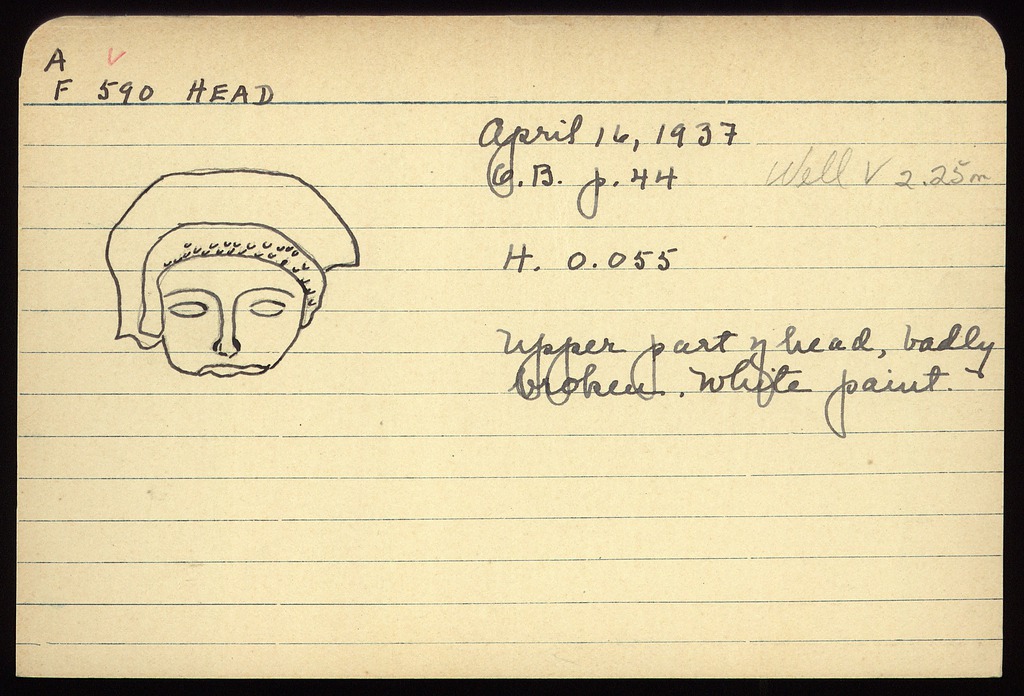 A
F 590 HEAD
April 16, 1937
G.B. p. 44 Well V 2.25m
H. 0.055
Upper part of head, badly
broken. White paint.